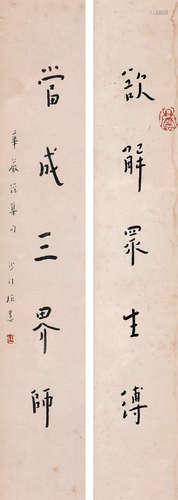 欲解眾生縛
當成三界師
華嚴經集句
沙門 書